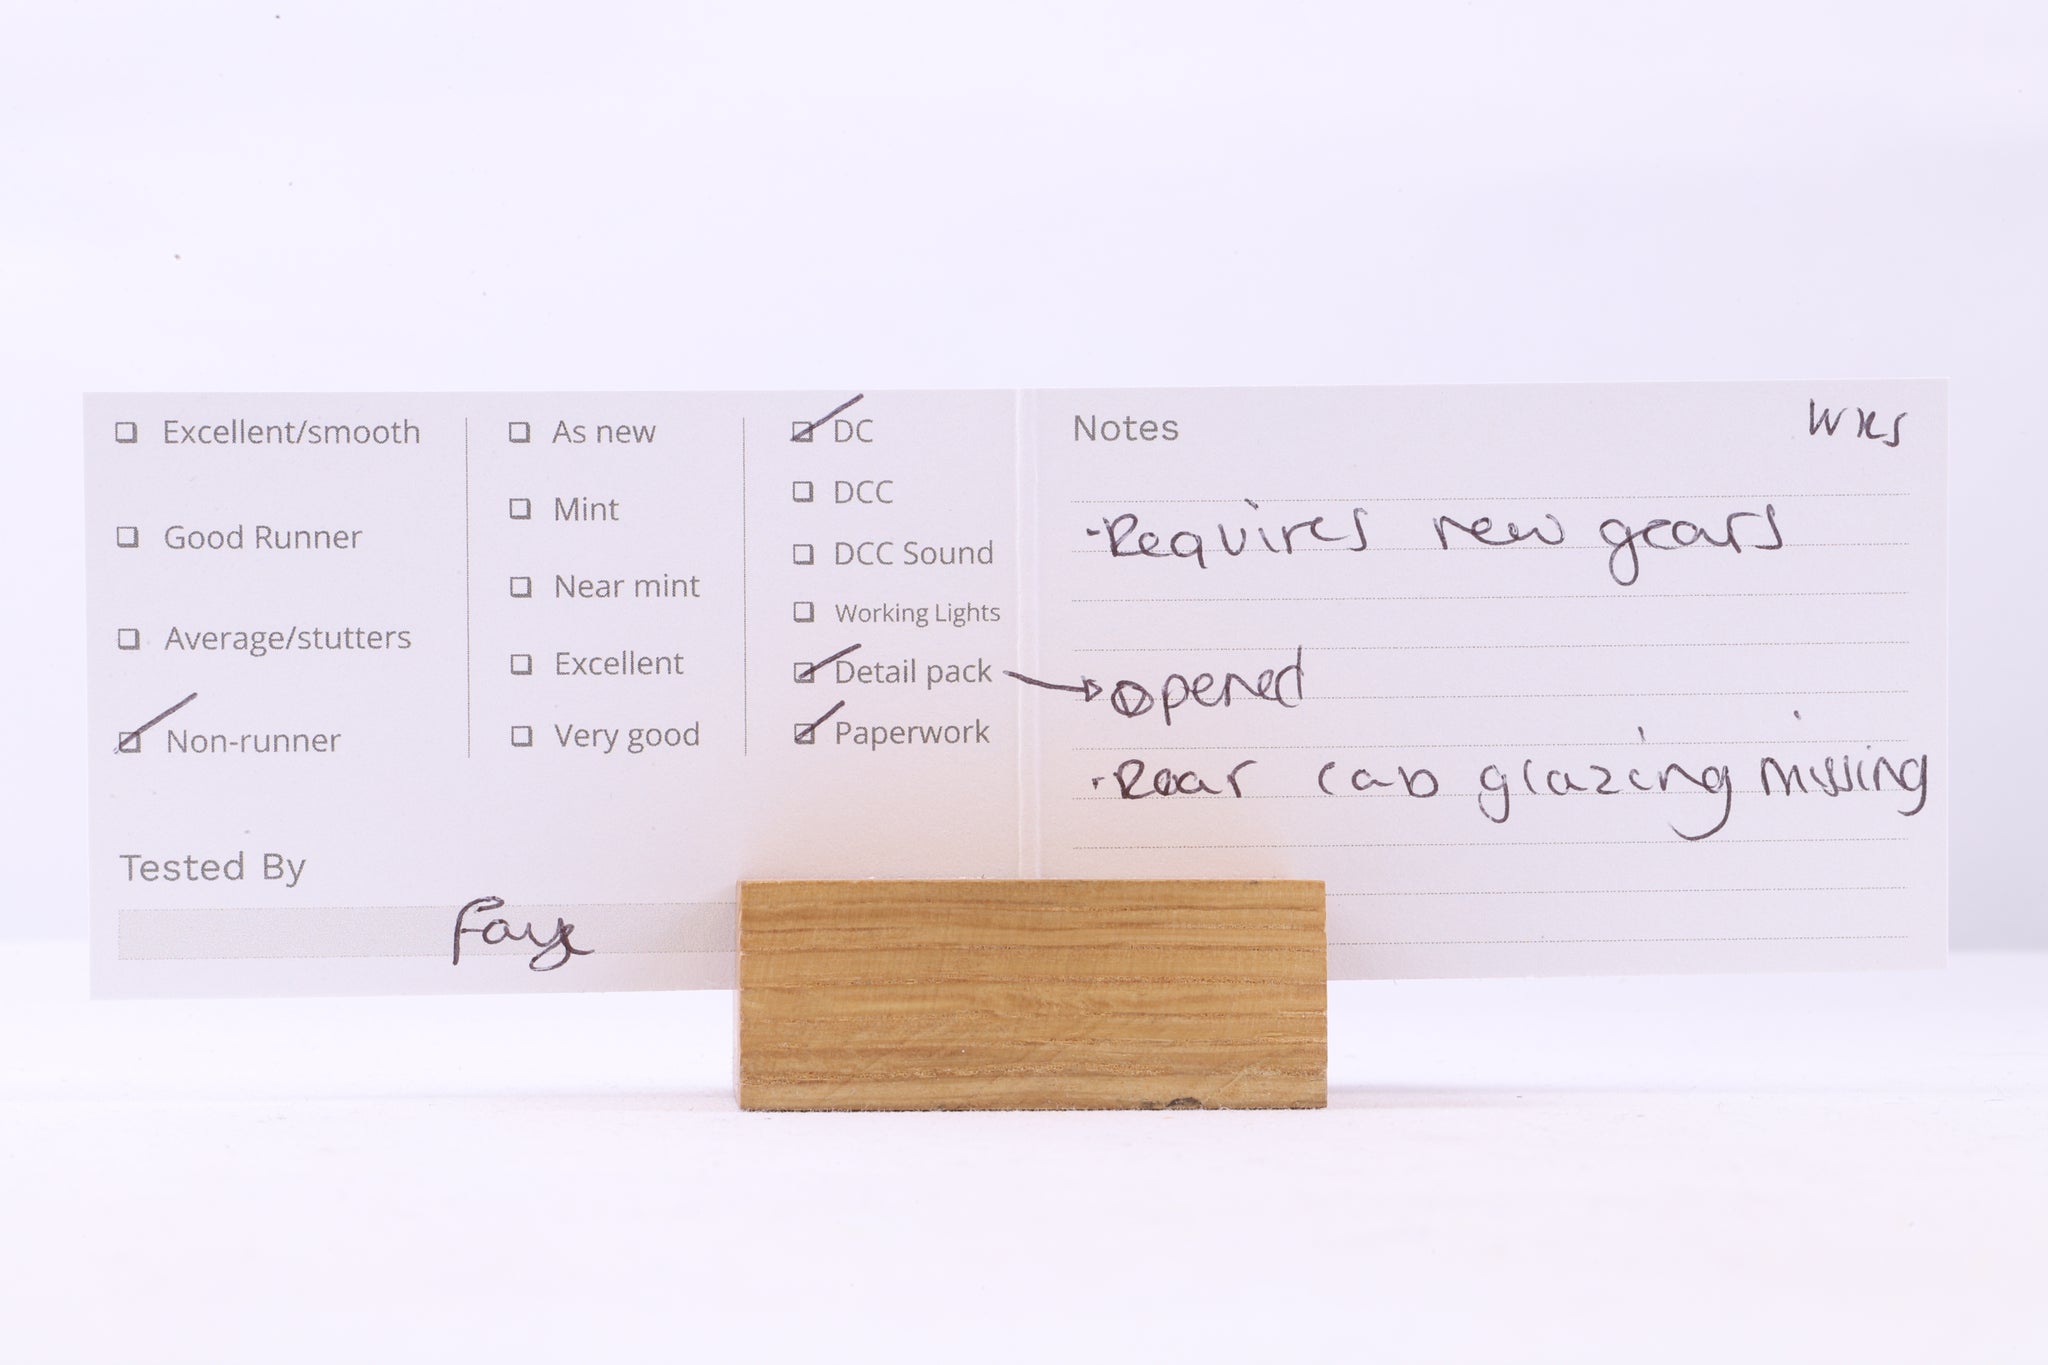 Excellent/smooth
Good Runner
Average/stutters
Non-runner
As new
Mint
Near mint
Excellent
Very good
DC
DCC
DCC Sound
Working Lights
Detail pack
Paperwork
Tested By
Faye
Notes
·Requires new gears
opened
·Rear cab glazing missing